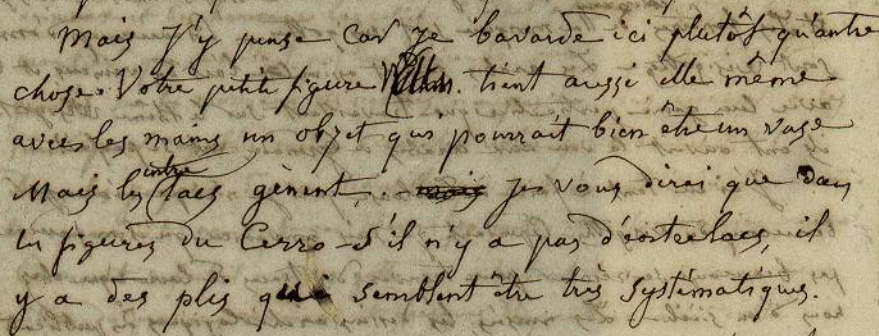 Mais j'y pense car je bavarde ici plutôt qu'autre
chose. Votre petite figure tient aussi elle même
avec les mains un objet qui pourrait bien être un vase
Mais les entrelacs gênent. mais je vous dirai que dans
les figures du Cerro - s'il n'y a pas d'entrelacs, il
y a des plis qui semblent être très systématiques.